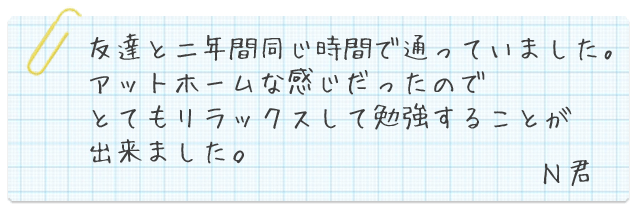 友達と二年間同じ時間で通っていました。
アットホームな感じだったので
とてもリラックスして勉強することが
出来ました。
N君